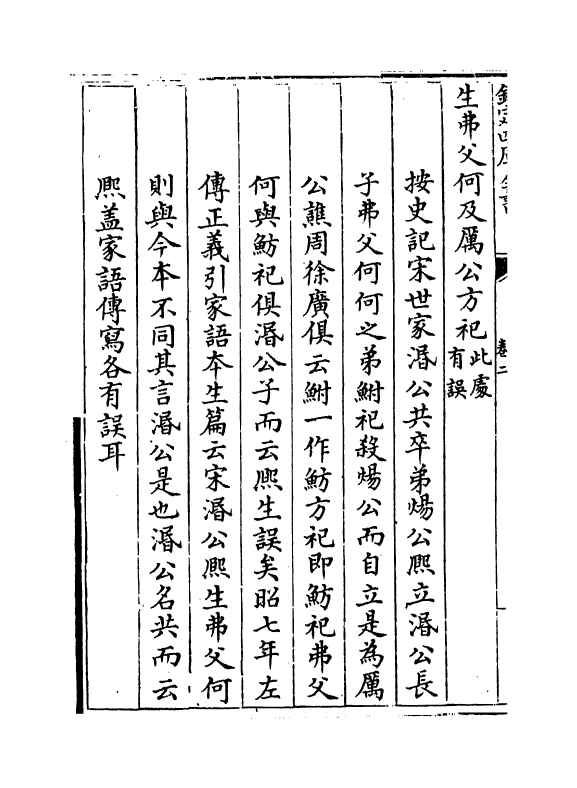 欽定四庫全書
卷二
生弗父何及厲公方祀此處有誤
按史記宋世家湣公共卒弟煬公熈立湣公長
子弗父何何之弟鮒祀殺煬公而自立是為厲
公譙周徐廣俱云鮒一作魴方祀即魴祀弗父
何與魴祀俱湣公子而云熈生誤矣昭七年左
傳正義引家語本生篇云宋湣公熈生弗父何
則與今本不同其言湣公是也湣公名共而云
熈盖家語傳寫各有誤耳